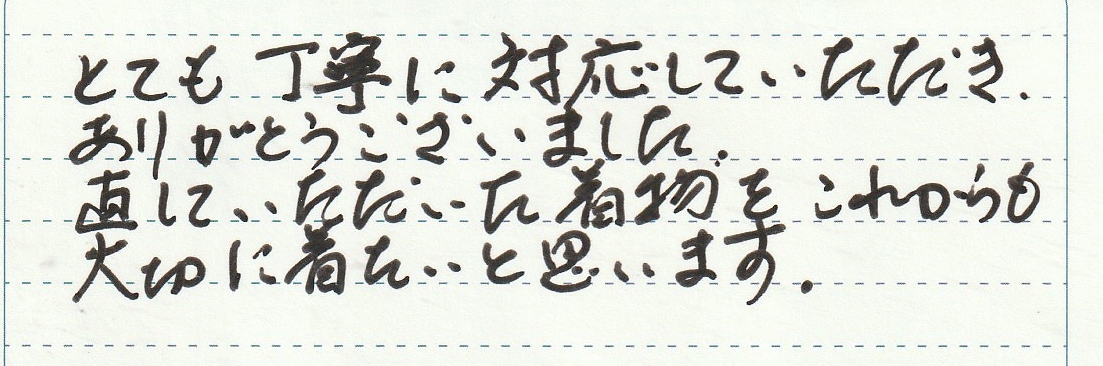 とても丁寧に対応していただき、
ありがとうございました。
直していただいた着物をこれからも
大切に着たいと思います。